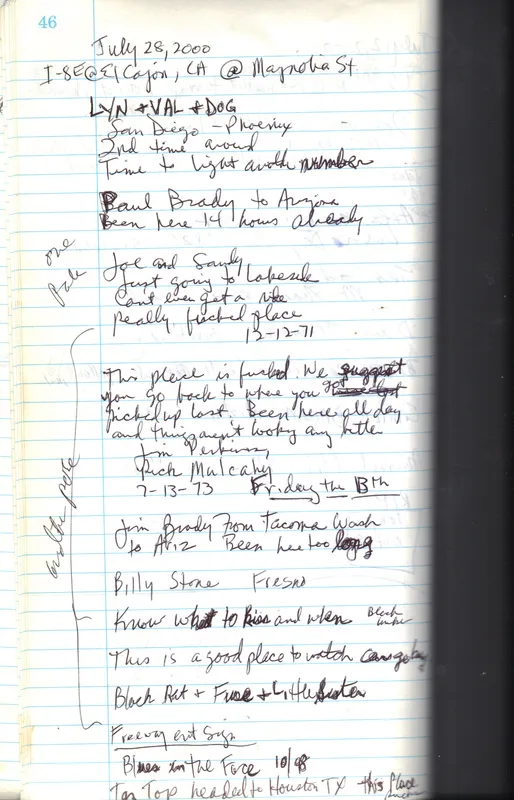 46
July 28, 2000
I-8E@El Cajon, CA @ Magnolia St
LYN + VAL + DOG
San Diego - Phoenix
2nd time around
Time to light another number
Paul Brady to Arizona
Been here 14 hours already
one
Pole
Joe and Sandy
Just going to Lakeside
Cant even get a ride
Really fucked place
12-12-71
This place is fucked. We suggest
you go back to where you got
picked up last. Been here all day
and things aren't looking any better
Jim Perkins,
Rich Mulcahy
7-13-73 Friday the 13th
another pole
Jim Brady From Tacoma Wash
to Ariz Been here too long
Billy Stone Fresno
Know what to kiss and when
This is a good place to watch cars go by
Black Rat + Fuse + Little Sister
Freeway ent Sign
Blues in the Face 10/98
Tan Top headed to Houston TX this place